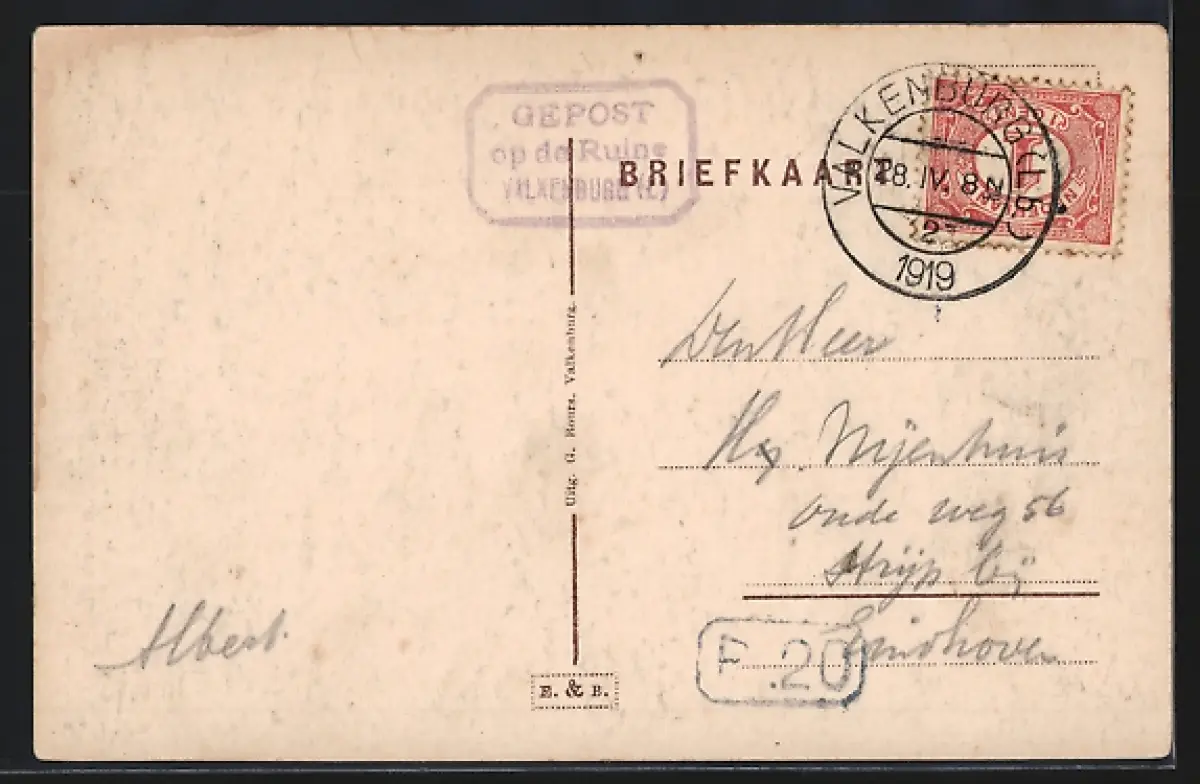 GEPOST
op de Ruine
VALKENBURG (L)
BRIEFKAART
VALKENBURG (LB)
28.IV. 8 N
2
1919
Den Heer
Nijenhuis
oude weg 56
Strijp bij
Eindhoven
Albert
Uitg. G. Rours, Valkenburg.
E. & B.
.20